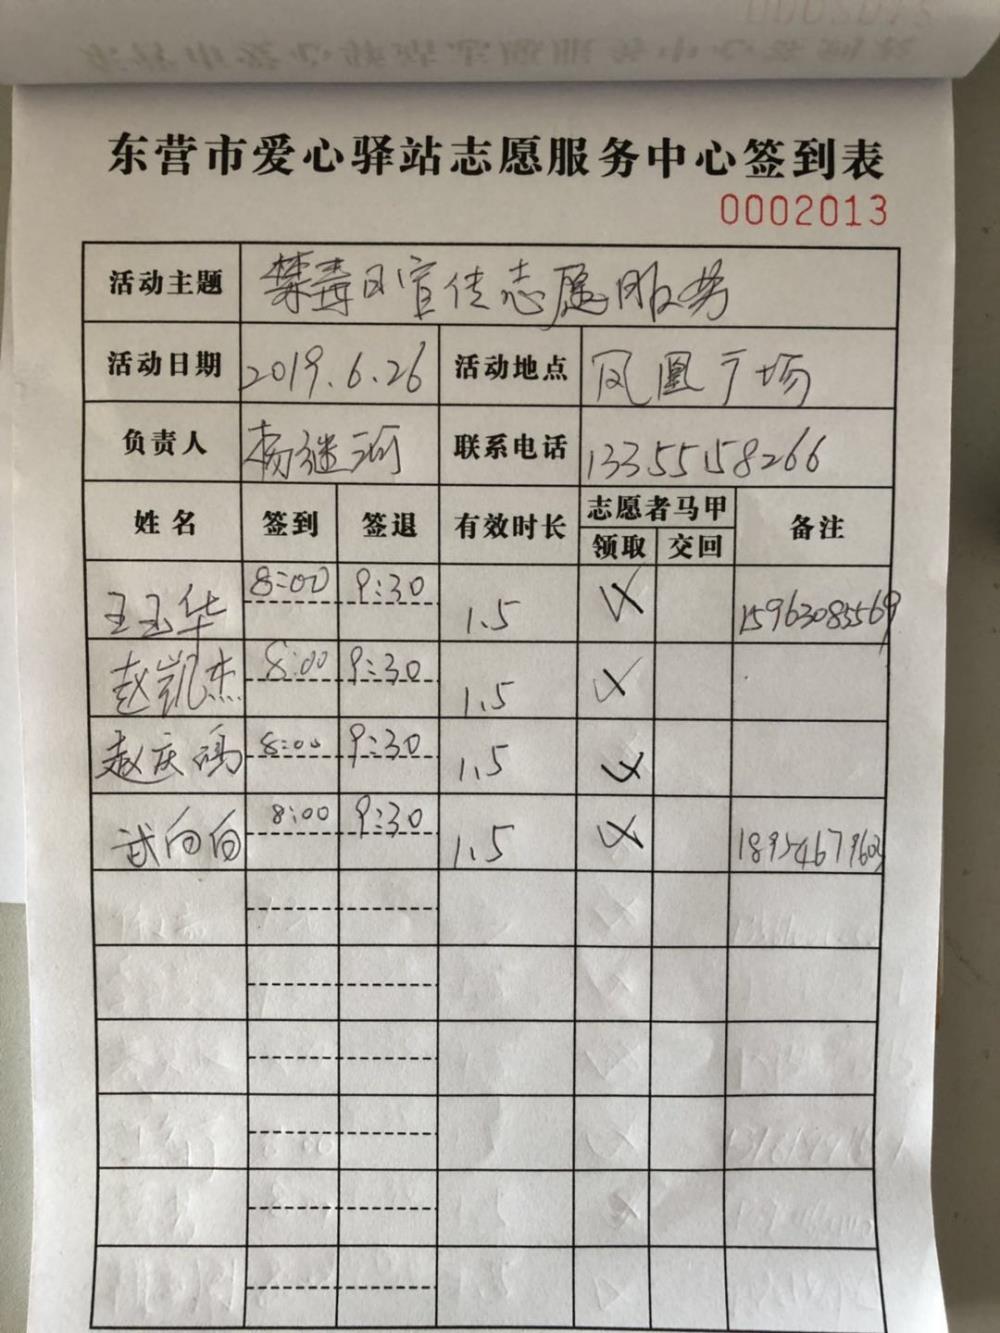 东营市爱心驿站志愿服务中心签到表
0002013
活动主题 禁毒日宣传志愿服务
活动日期 2019.6.26 活动地点 凤凰广场
负责人 杨继河 联系电话 13355158266
姓名 签到 签退 有效时长 志愿者马甲 备注
领取 交回
王玉华 8:00 9:30 1.5 15963085569
赵凯杰 8:00 9:30 1.5
赵庆 8:00 9:30 1.5
武向自 8:00 9:30 1.5 18954679603